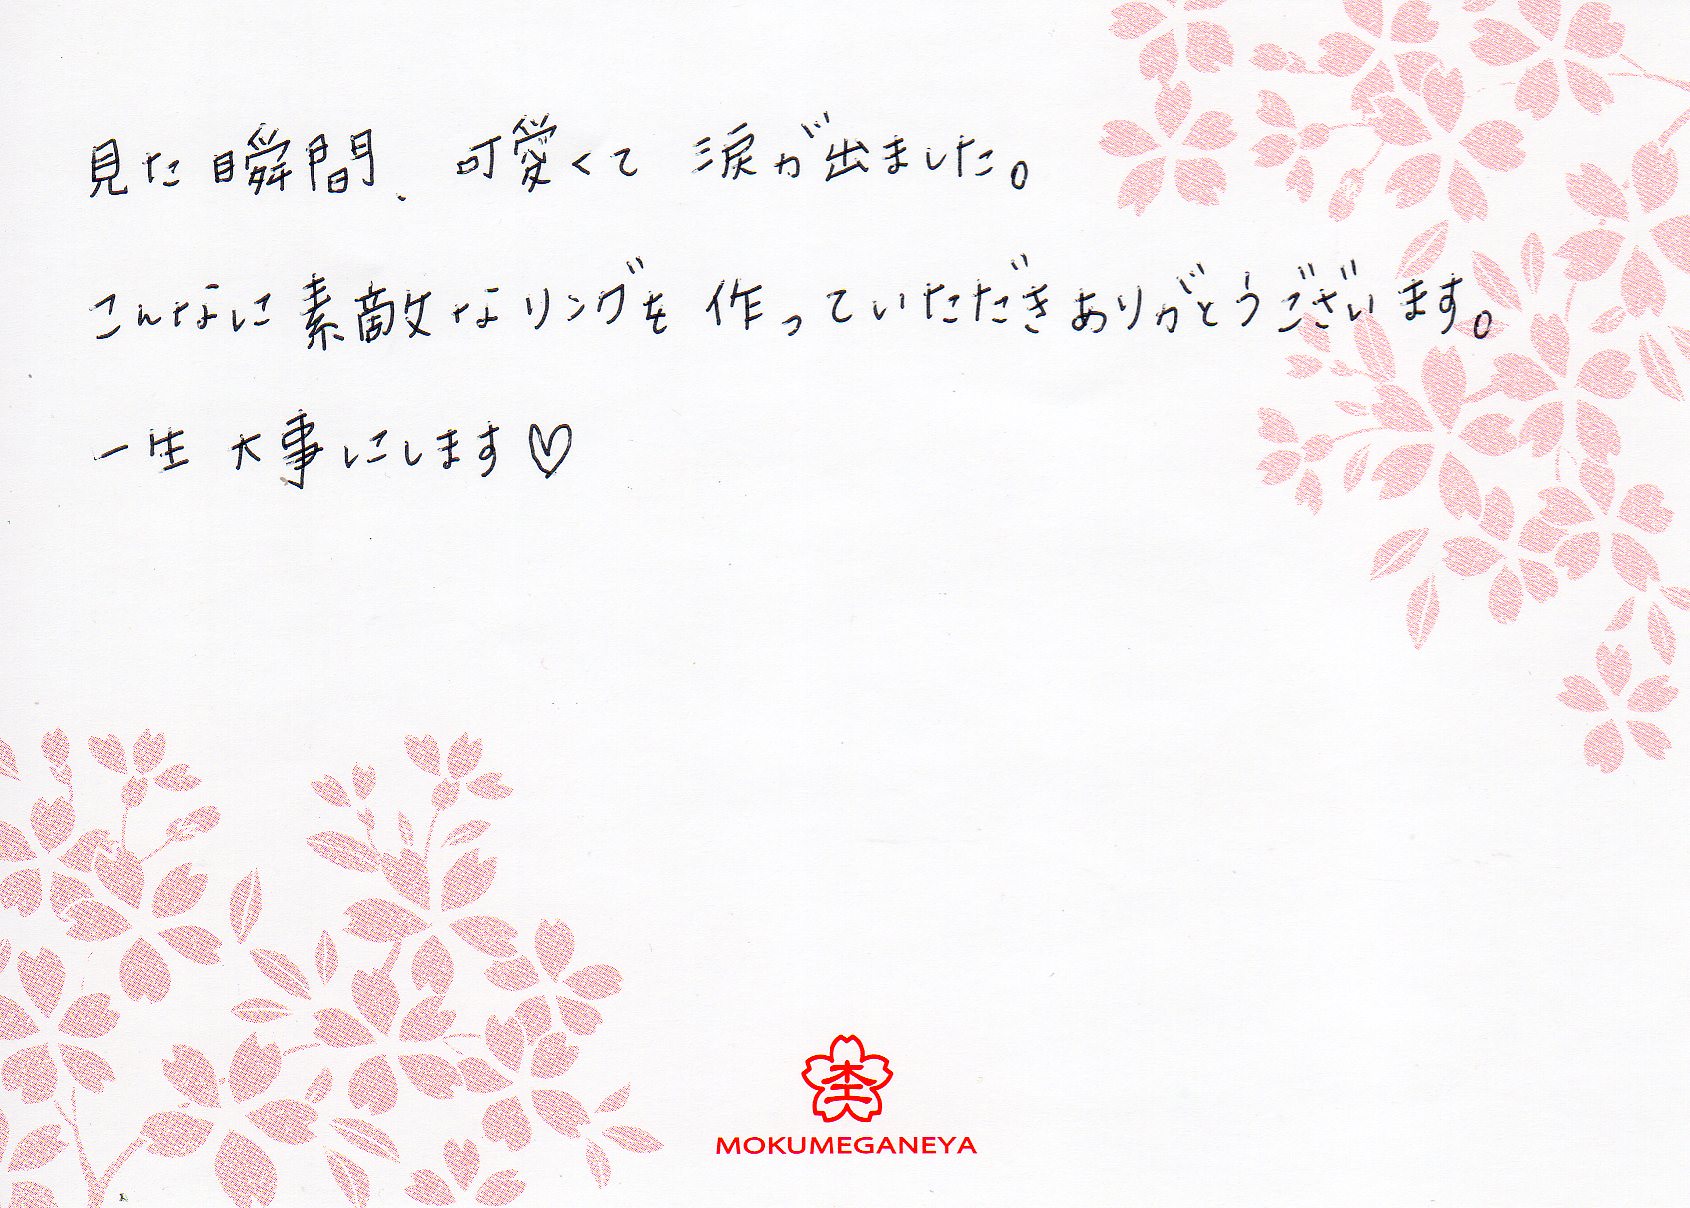 見た瞬間、可愛くて 涙が出ました。
こんなに素敵なリングを 作っていただきありがとうございます。
一生 大事にします♡
MOKUMEGANEYA